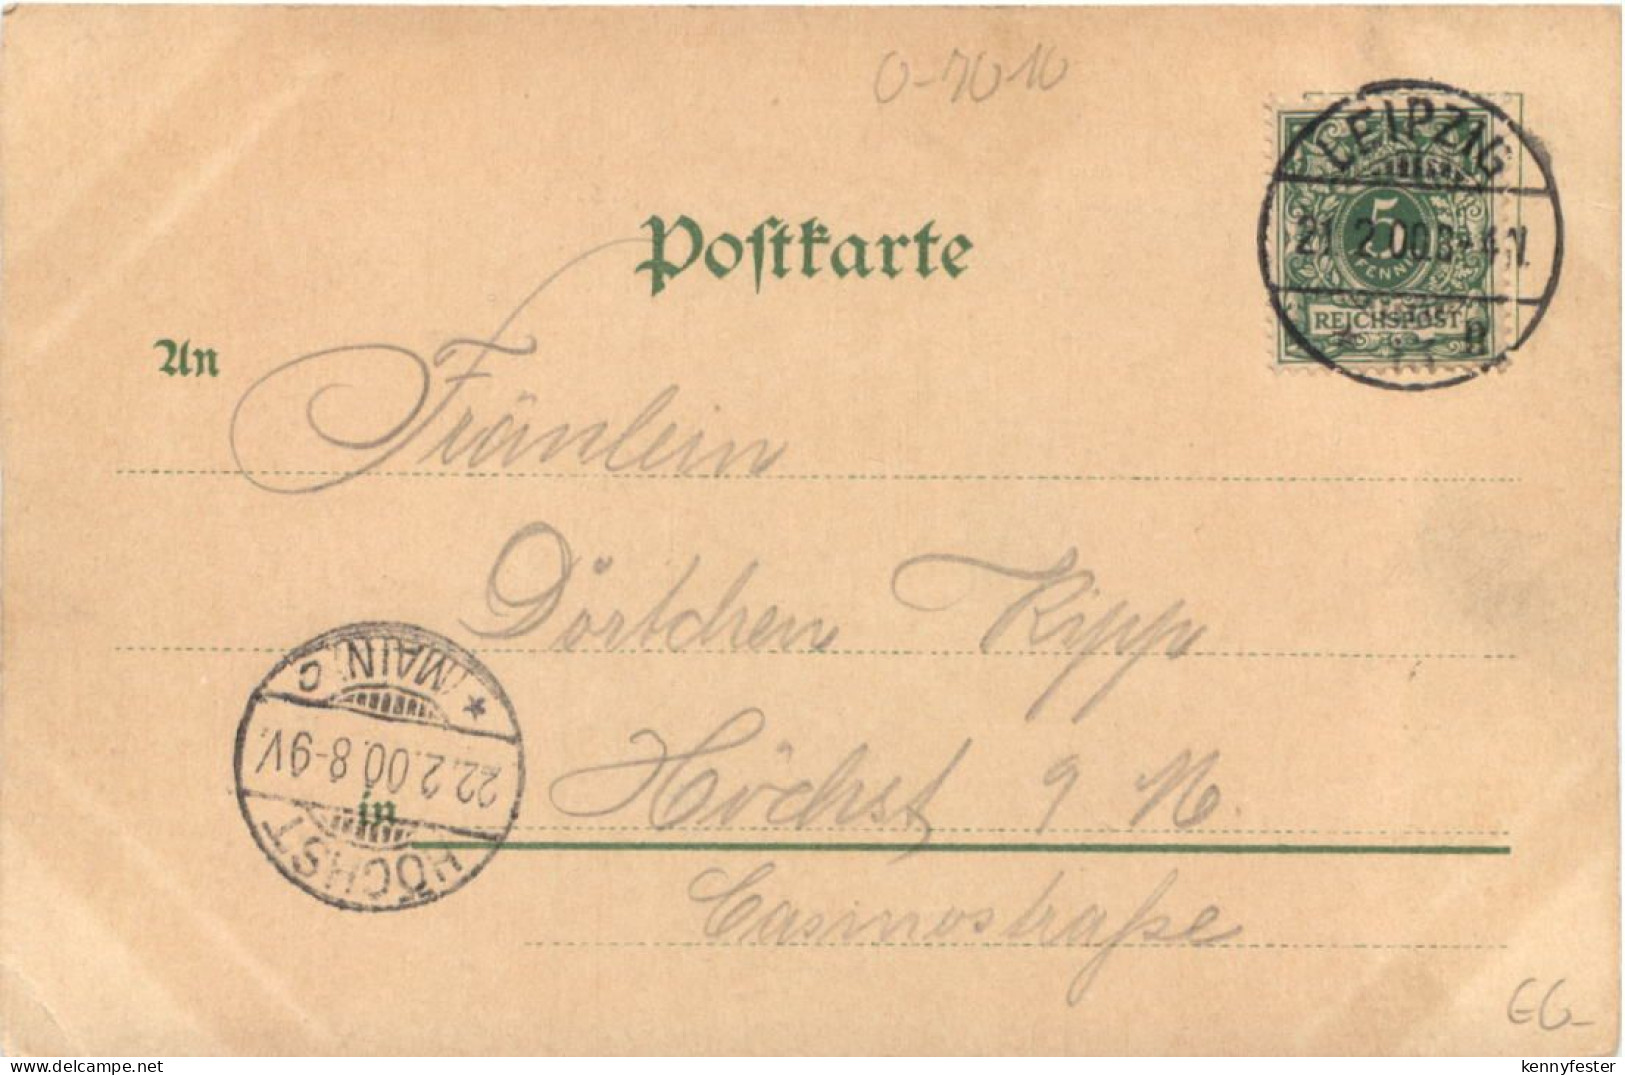 0-7010
LEIPZIG
21.2.00.3-4.V.
5
PFENNIG
REICHSPOST
Postkarte
An
Fräulein
Dörtchen Kipp
Höchst a M.
Casinostraße
in
HÖCHST
22.2.00.8-9V.
(MAIN) C
EG-
kennyfester